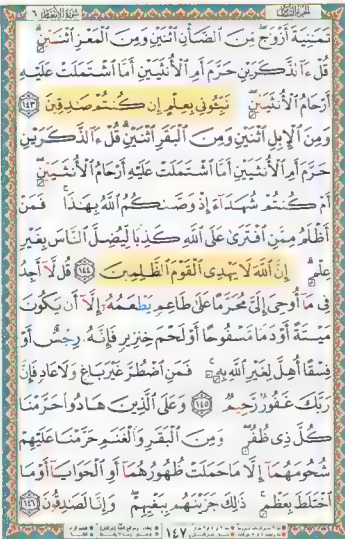 ثَمَٰنِيَةَ أَزْوَٰجٍ مِّنَ ٱلضَّأْنِ ٱثْنَيْنِ وَمِنَ ٱلْمَعْزِ ٱثْنَيْنِ
قُلْ ءَآلذَّكَرَيْنِ حَرَّمَ أَمِ ٱلْأُنثَيَيْنِ أَمَّا ٱشْتَمَلَتْ عَلَيْهِ
أَرْحَامُ ٱلْأُنثَيَيْنِ نَبِّـُٔونِى بِعِلْمٍ إِن كُنتُمْ صَٰدِقِينَ ١٤٣
وَمِنَ ٱلْإِبِلِ ٱثْنَيْنِ وَمِنَ ٱلْبَقَرِ ٱثْنَيْنِ قُلْ ءَآلذَّكَرَيْنِ
حَرَّمَ أَمِ ٱلْأُنثَيَيْنِ أَمَّا ٱشْتَمَلَتْ عَلَيْهِ أَرْحَامُ ٱلْأُنثَيَيْنِ
أَمْ كُنتُمْ شُهَدَآءَ إِذْ وَصَّىٰكُمُ ٱللَّهُ بِهَٰذَا فَمَنْ
أَظْلَمُ مِمَّنِ ٱفْتَرَىٰ عَلَى ٱللَّهِ كَذِبًا لِّيُضِلَّ ٱلنَّاسَ بِغَيْرِ
عِلْمٍ إِنَّ ٱللَّهَ لَا يَهْدِى ٱلْقَوْمَ ٱلظَّٰلِمِينَ ١٤٤ قُل لَّآ أَجِدُ
فِى مَآ أُوحِىَ إِلَىَّ مُحَرَّمًا عَلَىٰ طَاعِمٍ يَطْعَمُهُۥٓ إِلَّآ أَن يَكُونَ
مَيْتَةً أَوْ دَمًا مَّسْفُوحًا أَوْ لَحْمَ خِنزِيرٍ فَإِنَّهُۥ رِجْسٌ أَوْ
فِسْقًا أُهِلَّ لِغَيْرِ ٱللَّهِ بِهِۦ فَمَنِ ٱضْطُرَّ غَيْرَ بَاغٍ وَلَا عَادٍ فَإِنَّ
رَبَّكَ غَفُورٌ رَّحِيمٌ ١٤٥ وَعَلَى ٱلَّذِينَ هَادُوا۟ حَرَّمْنَا
كُلَّ ذِى ظُفُرٍ وَمِنَ ٱلْبَقَرِ وَٱلْغَنَمِ حَرَّمْنَا عَلَيْهِمْ
شُحُومَهُمَآ إِلَّا مَا حَمَلَتْ ظُهُورُهُمَآ أَوِ ٱلْحَوَايَآ أَوْ مَا
ٱخْتَلَطَ بِعَظْمٍ ذَٰلِكَ جَزَيْنَٰهُم بِبَغْيِهِمْ وَإِنَّا لَصَٰدِقُونَ ١٤٦
١٤٧